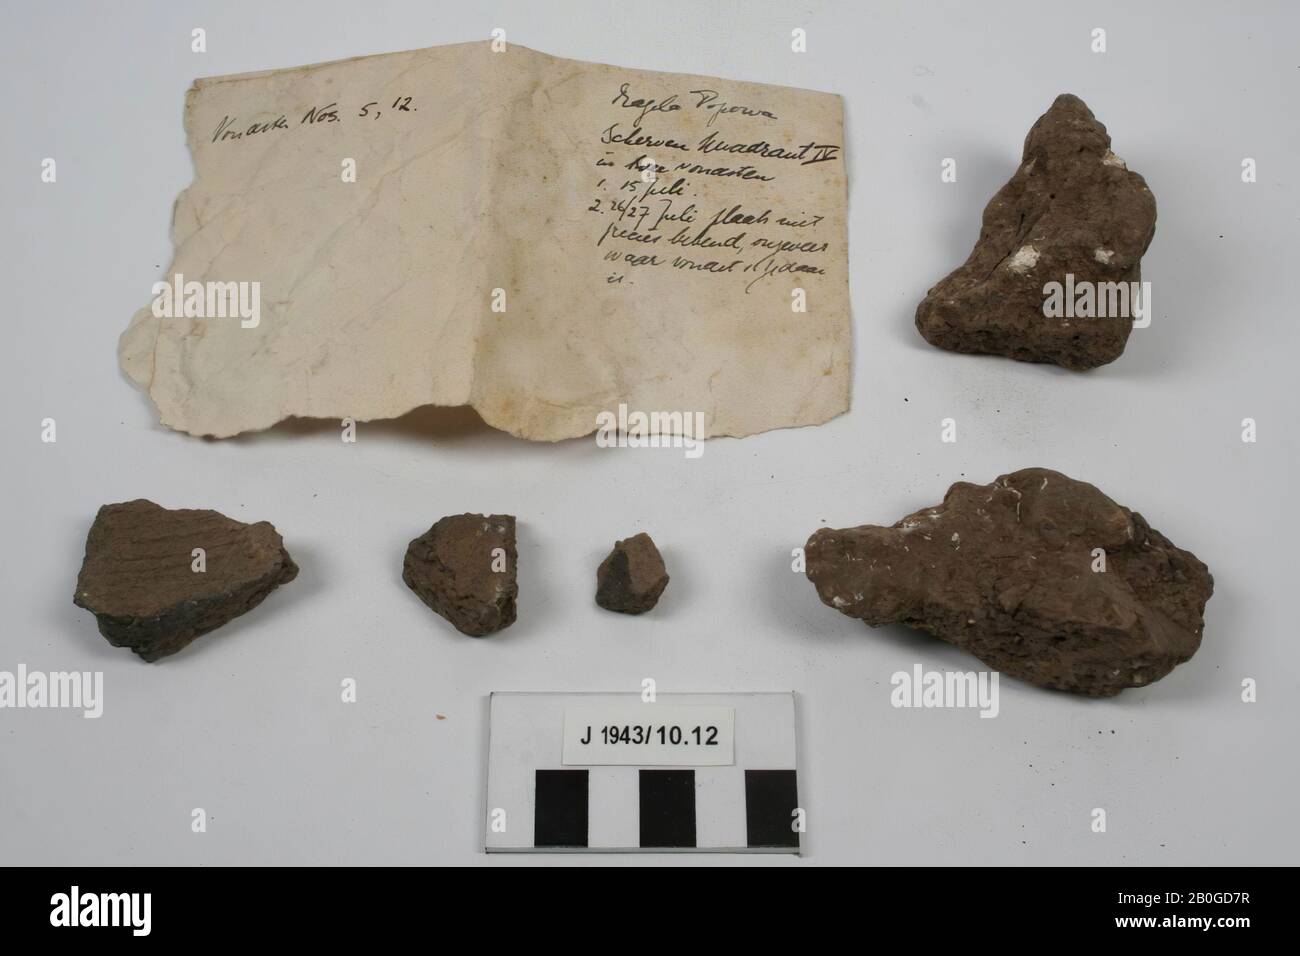 Vondsten Nos. 5, 12.
Magila Popowa
Scherven Kwadrant IV
in twee vondsten
1. 15 Juli.
2. 26/27 Juli plaats niet
precies bekend, ongeveer
waar vondst 1 gedaan
is.
J 1943/10.12
alamy
Image ID: 2B0GD7R
www.alamy.com